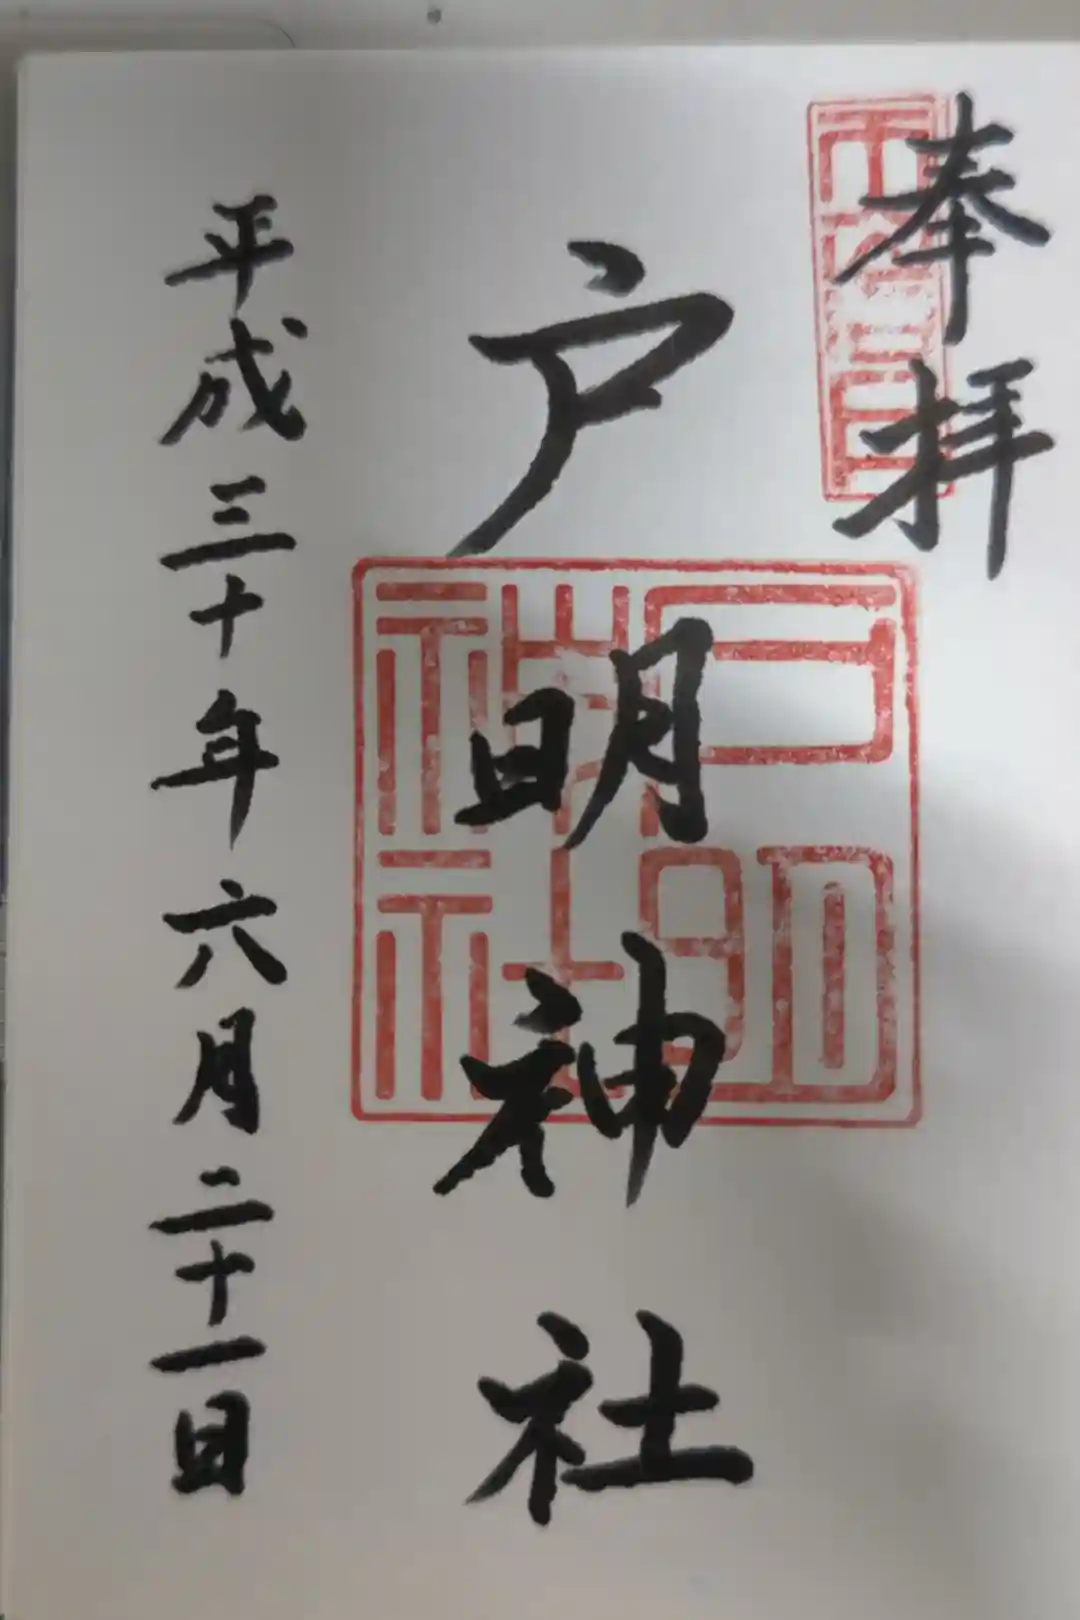 奉拝
戸明神社
平成三十年六月二十一日